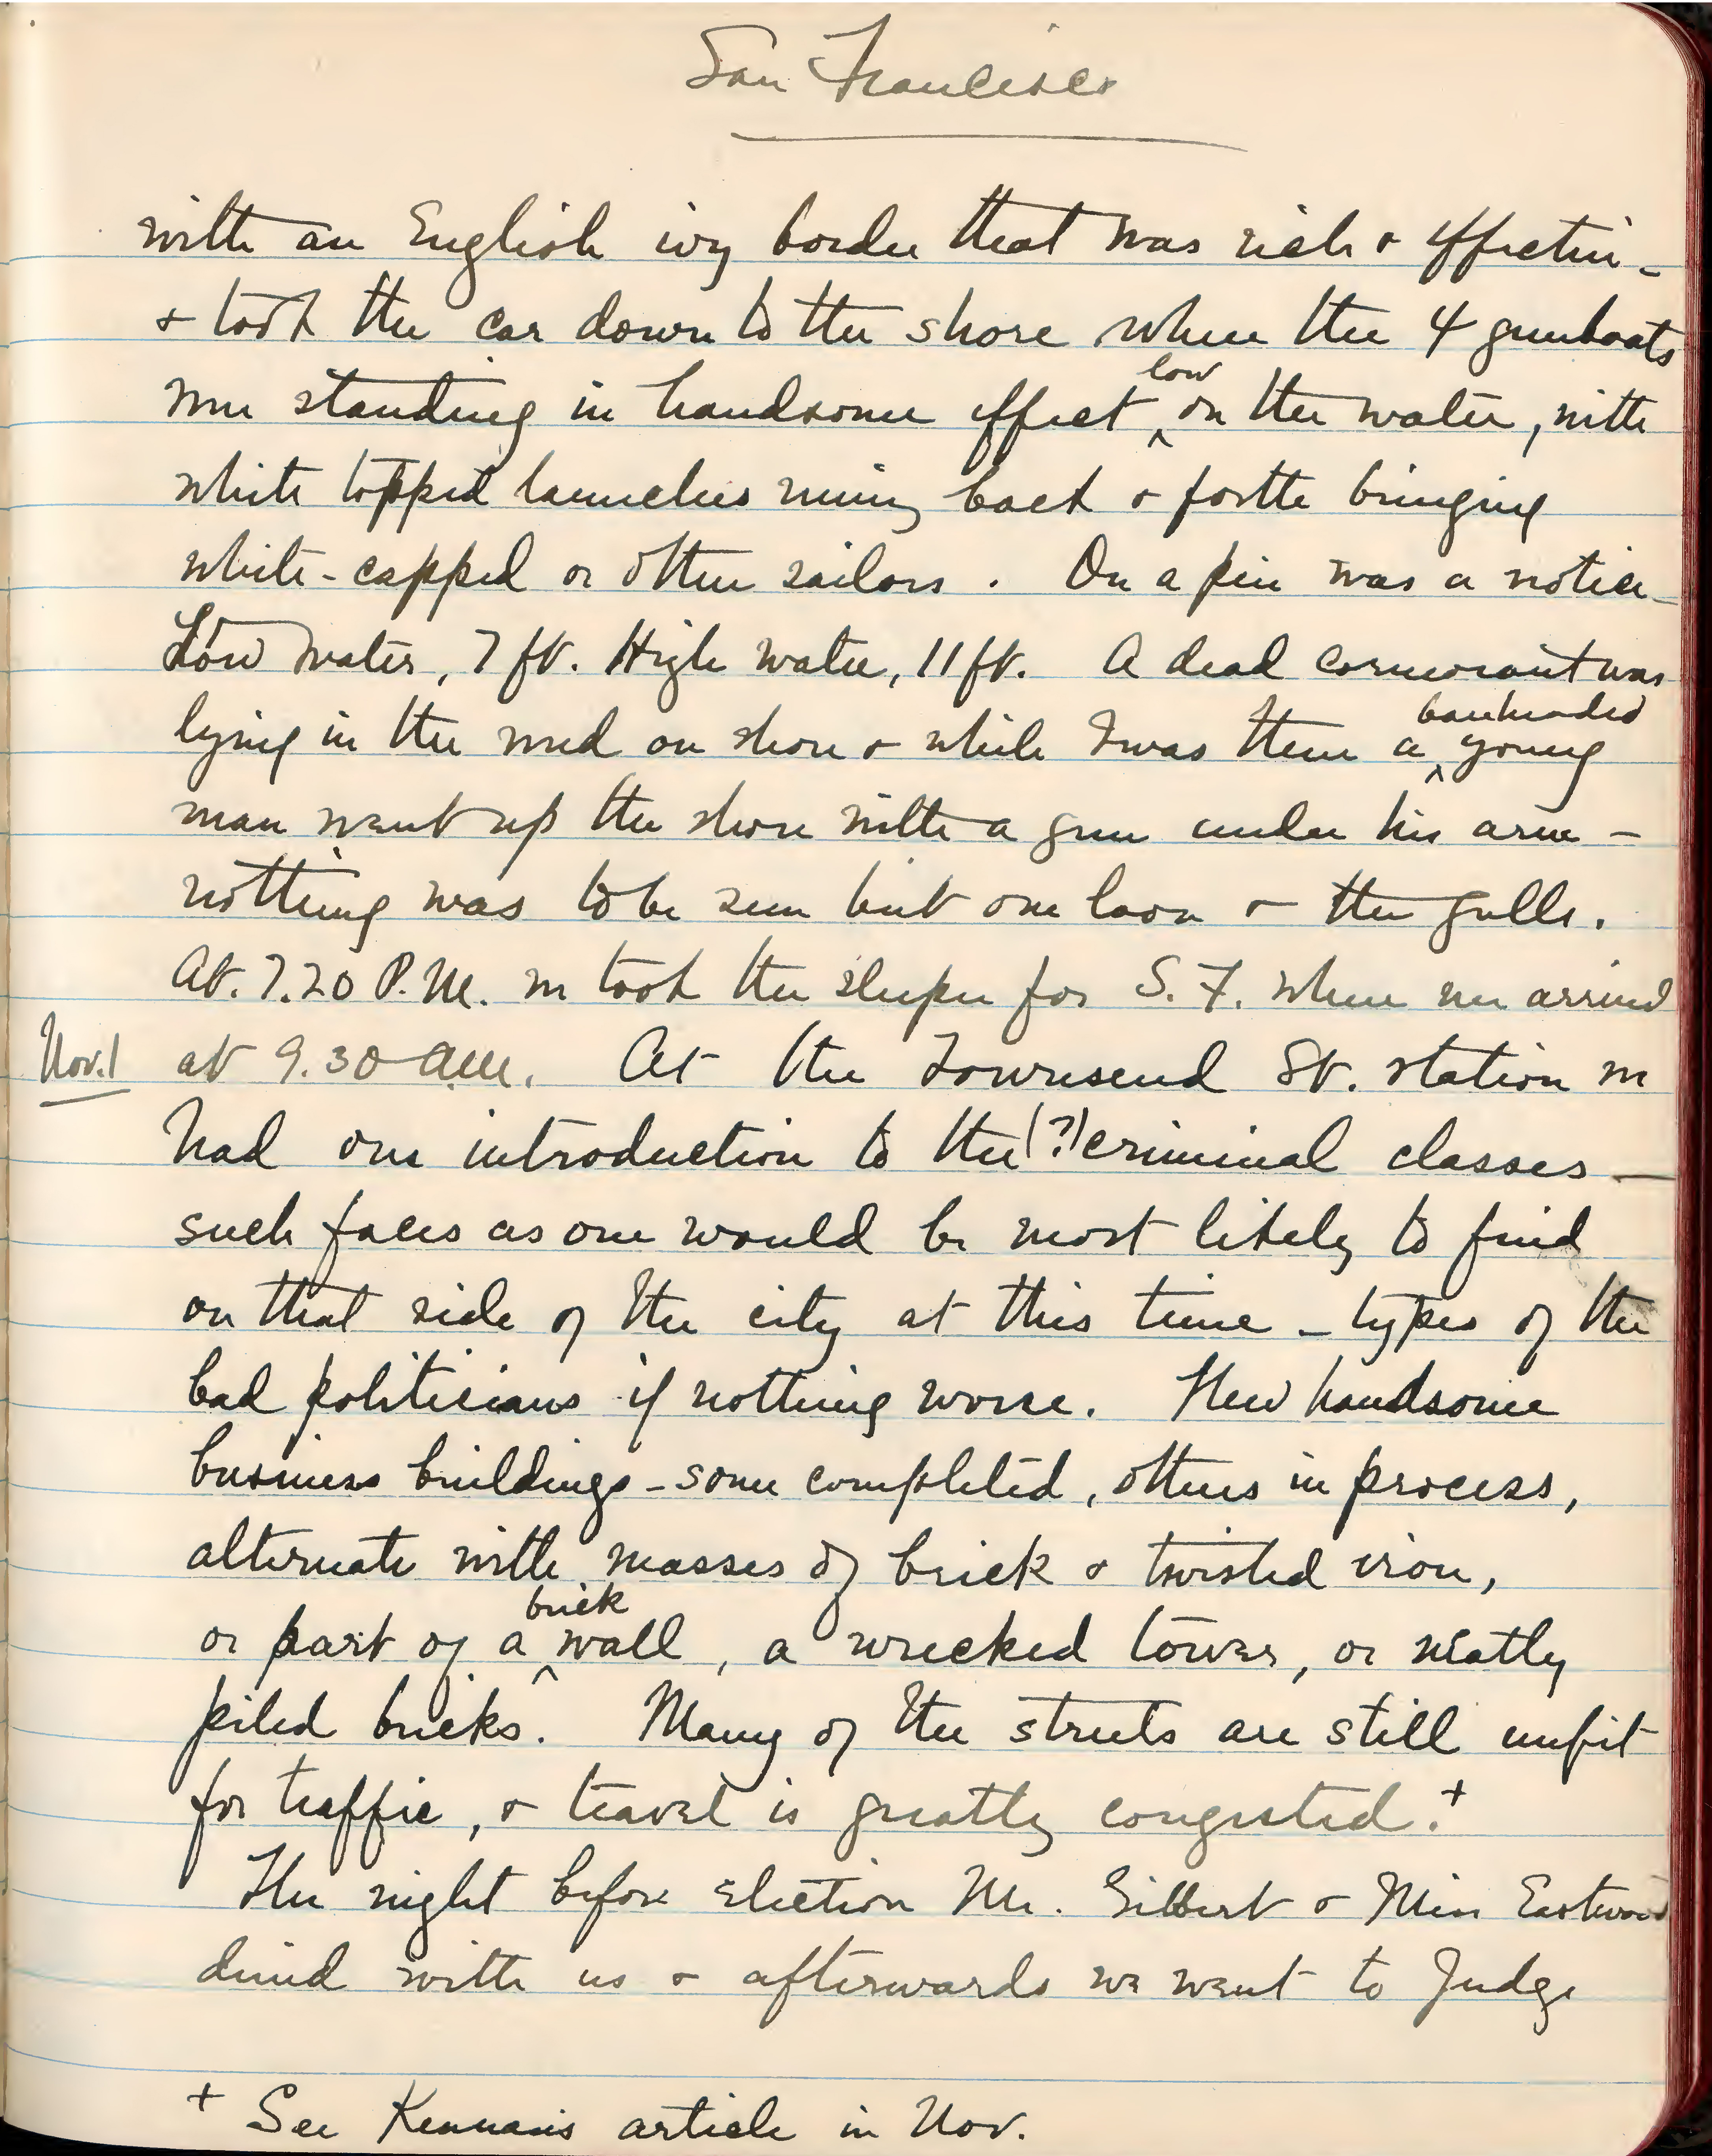 San Francisco
with an English ivy border that was rich & effective -
& took the car down to the shore where the 4 gunboats
low
were standing in handsome effect ^ on the water, with
white topped launches running back & forth bringing
white-capped or other sailors. On a pier was a notice -
Low water, 7 ft. High water, 11 ft. A dead cormorant was
bareheaded
lying in the mud on shore & while I was there a ^ young
man went up the shore with a gun under his arm -
nothing was to be seen but one loon & the gulls.
At. 7.20 P.M. we took the sleeper for S. F. where we arrived
Nov. 1 at 9.30 A.M. At the Townsend St. station we
had our introduction to the (?) criminal classes -
such faces as one would be most likely to find
on that side of the city at this time - types of the
bad politicians if nothing worse. New handsome
business buildings - some completed, others in process,
alternate with masses of brick & twisted iron,
brick
or part of a ^ wall, a wrecked tower, or neatly
piled bricks. Many of the streets are still unfit
for traffic, & travel is greatly congested. +
The night before election Mr. Gilbert & Miss Eastwood
dined with us & afterwards we went to Judge
+ See Kennan's article in Nov.